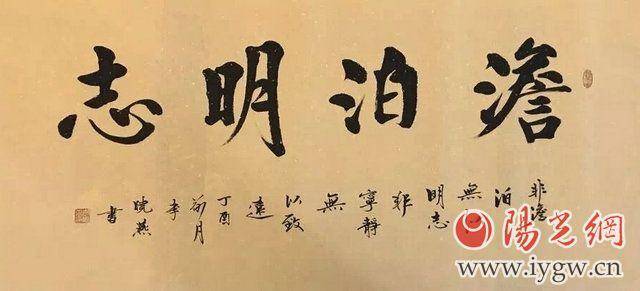 澹泊明志
非澹
泊
無
明志
非
寧靜
無
以致
遠
丁酉
月
李
曉燕
書
陽光網
www.iygw.cn